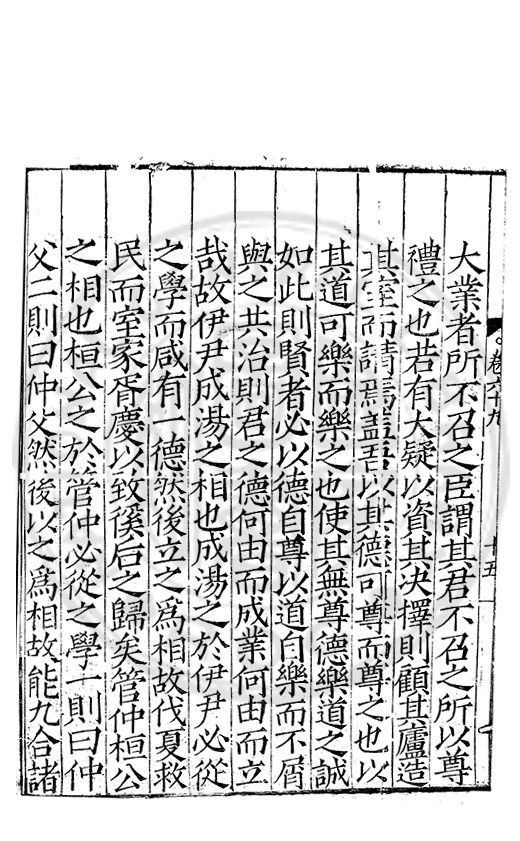 卷六十九
十五
大業者所不召之臣謂其君不召之所以尊
禮之也若有大疑以資其决擇則顧其廬造
其室而請焉盖吾以其德可尊而尊之也以
其道可樂而樂之也使其無尊德樂道之誠
如此則賢者必以德自尊以道自樂而不屑
與之共治則君之德何由而成業何由而立
哉故伊尹成湯之相也成湯之於伊尹必從
之學而咸有一德然後立之為相故伐夏救
民而室家胥慶以致徯后之歸矣管仲桓公
之相也桓公之於管仲必從之學一則曰仲
父二則曰仲父然後以之為相故能九合諸